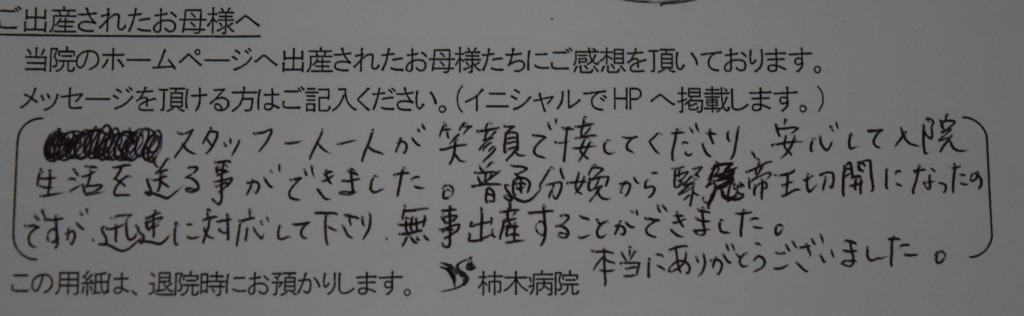 ご出産されたお母様へ
当院のホームページへ出産されたお母様たちにご感想を頂いております。
メッセージを頂ける方はご記入ください。(イニシャルでHPへ掲載します。)
スタッフ一人一人が笑顔で接してくださり、安心して入院
生活を送る事ができました。普通分娩から緊急帝王切開になったの
ですが、迅速に対応して下さり、無事出産することができました。
本当にありがとうございました。
この用紙は、退院時にお預かりします。 柿木病院